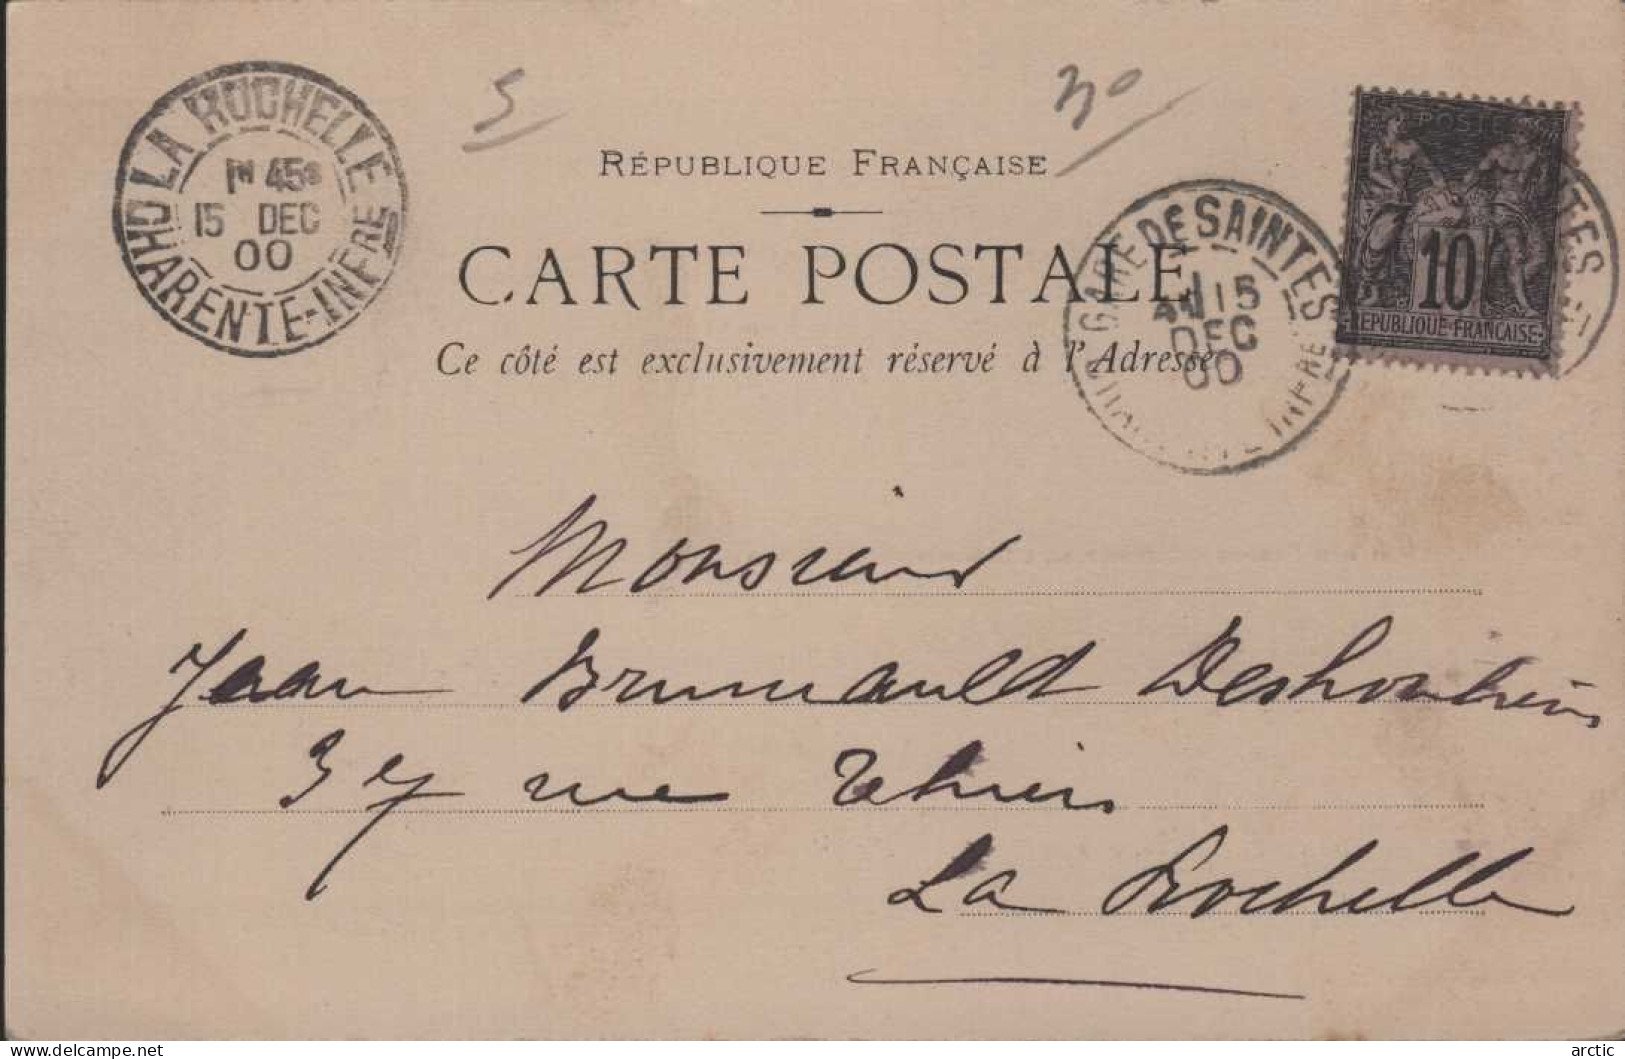 LA ROCHELLE
45
15 DEC
00
CHARENTE-INFRE
5
30
RÉPUBLIQUE FRANÇAISE
CARTE POSTALE
Ce côté est exclusivement réservé à l'Adresse
GARE DE SAINTES
15
DEC
00
INFRE
POSTE
10
REPUBLIQUE-FRANÇAISE
Monsieur
Jean Brumauld Deshoulières
37 rue Thiers
La Rochelle
www.delcampe.net
arctic